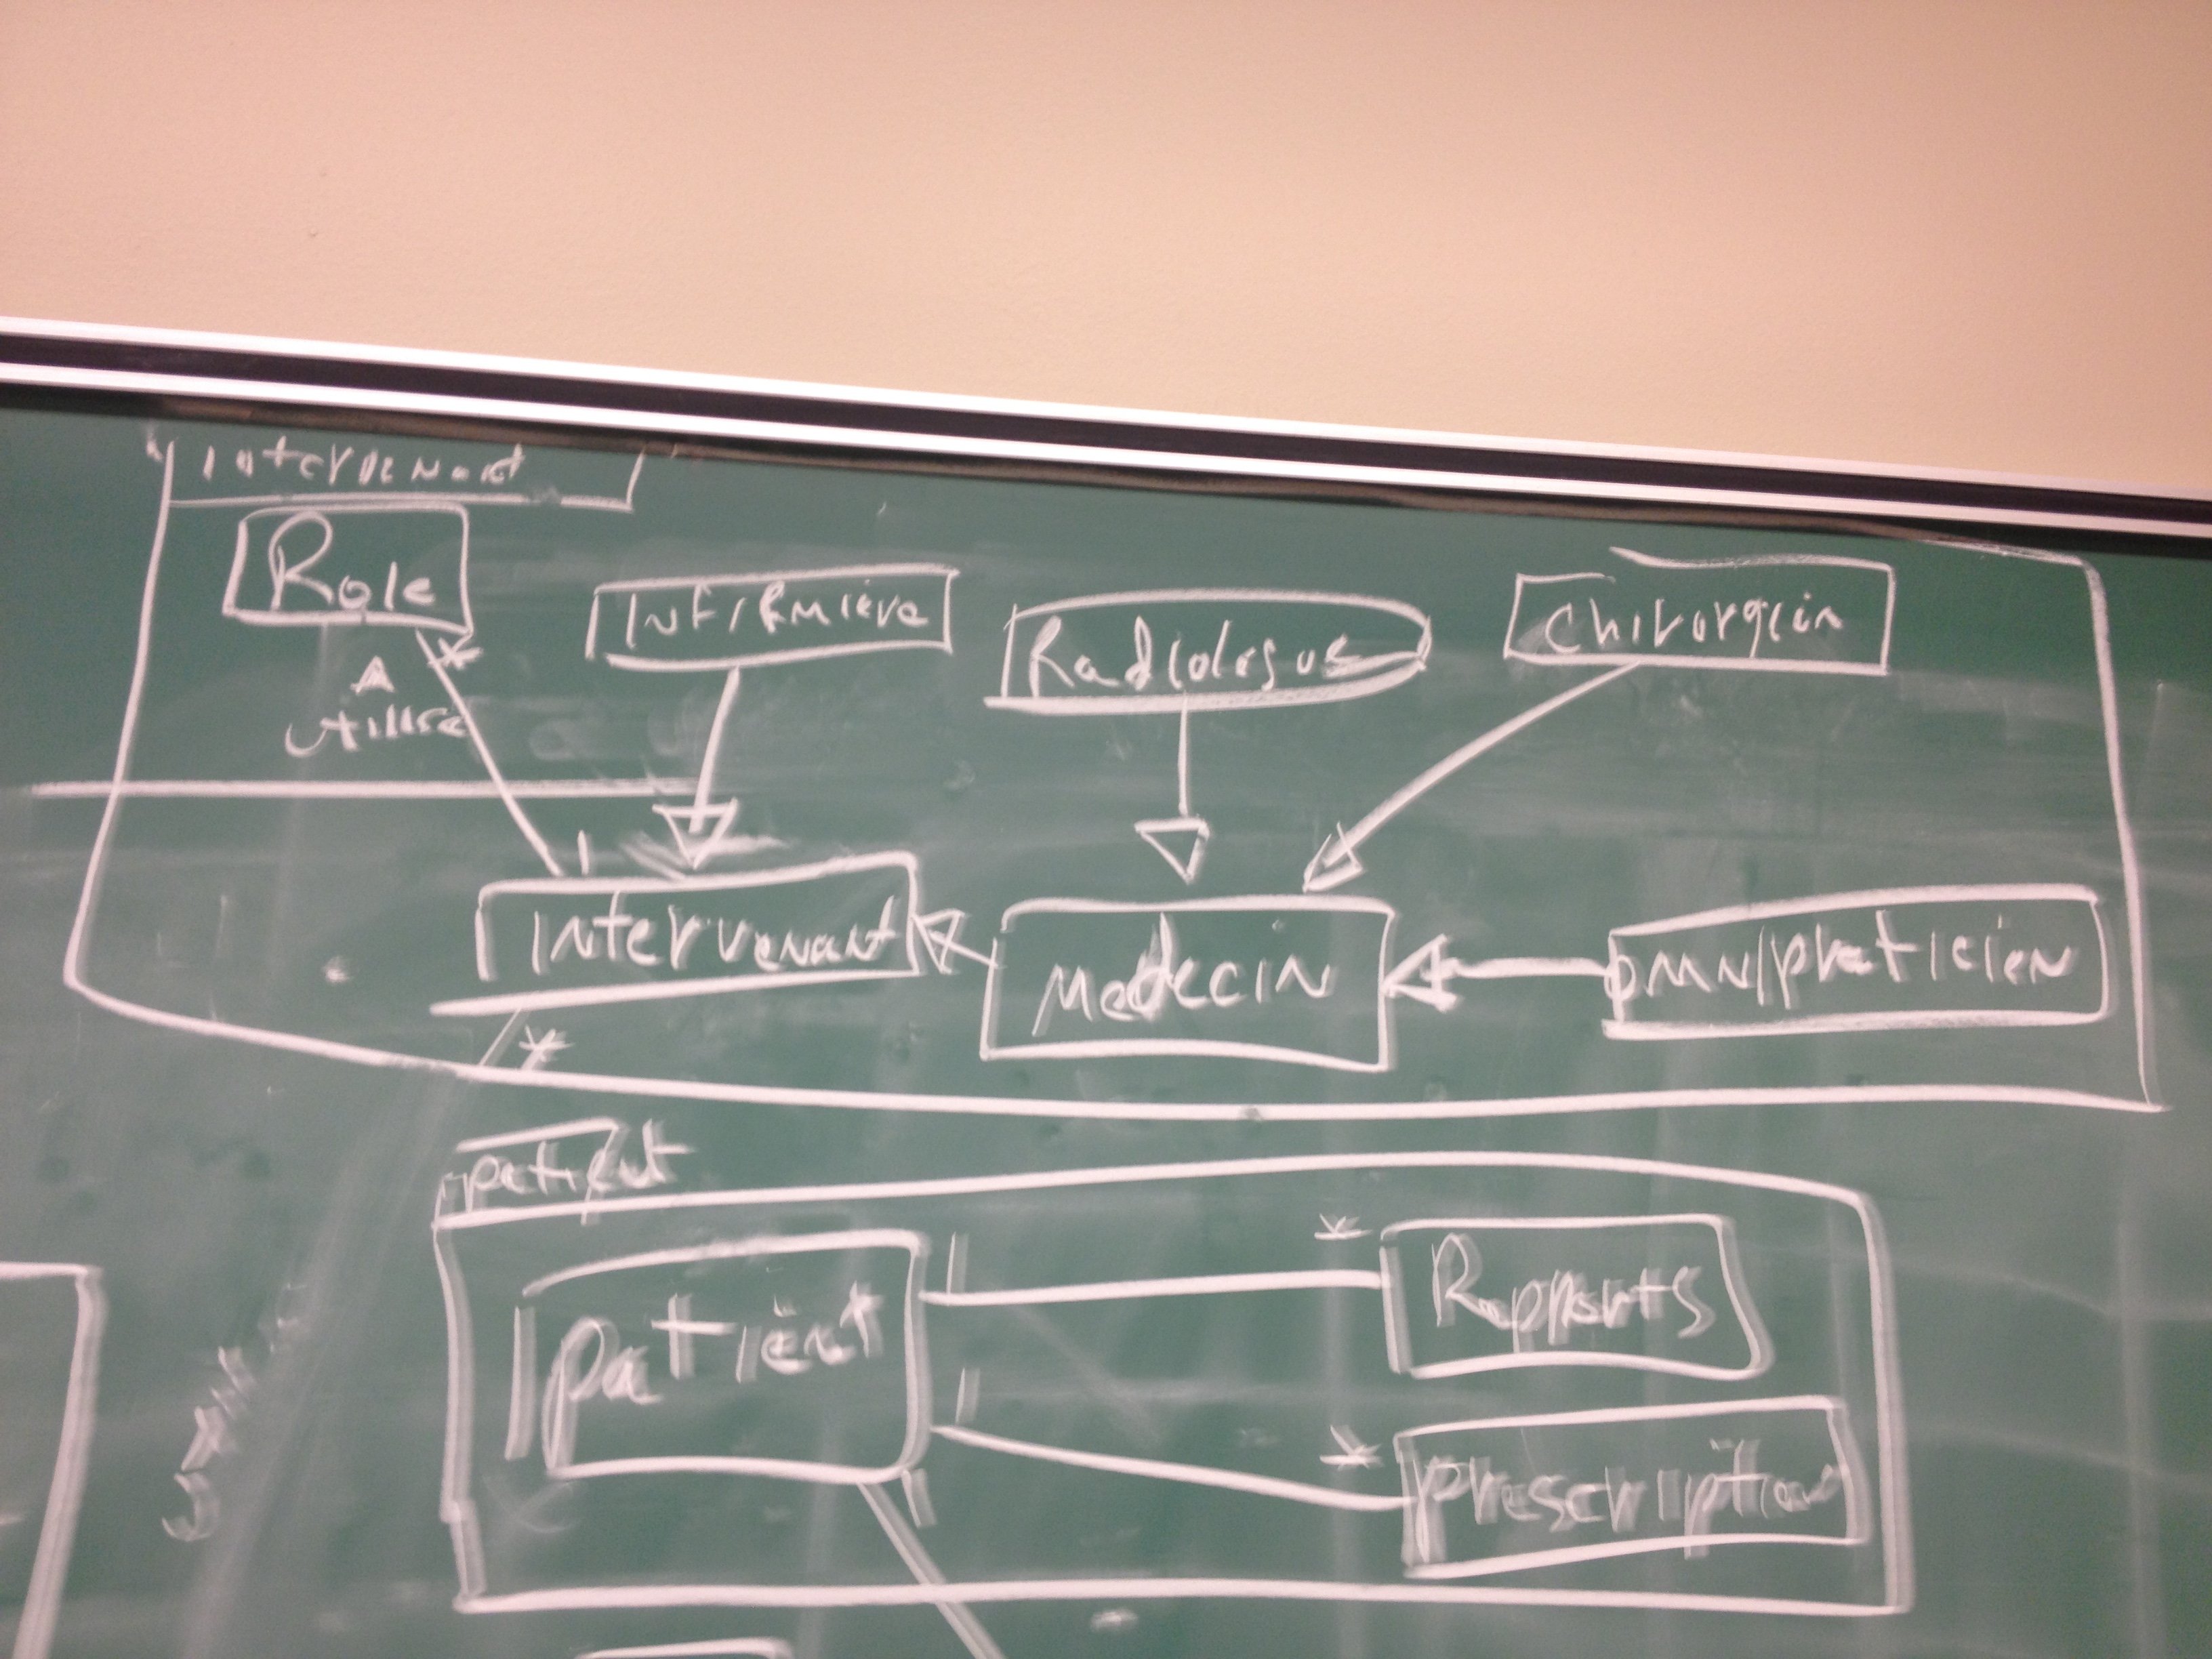 Intervenant
Role
Infirmière
Radiologue
Chirurgein
*
utilise
1
Intervenant
Medecin
omnipraticien
*
patient
patient
1
*
Rapports
1
*
prescription
1